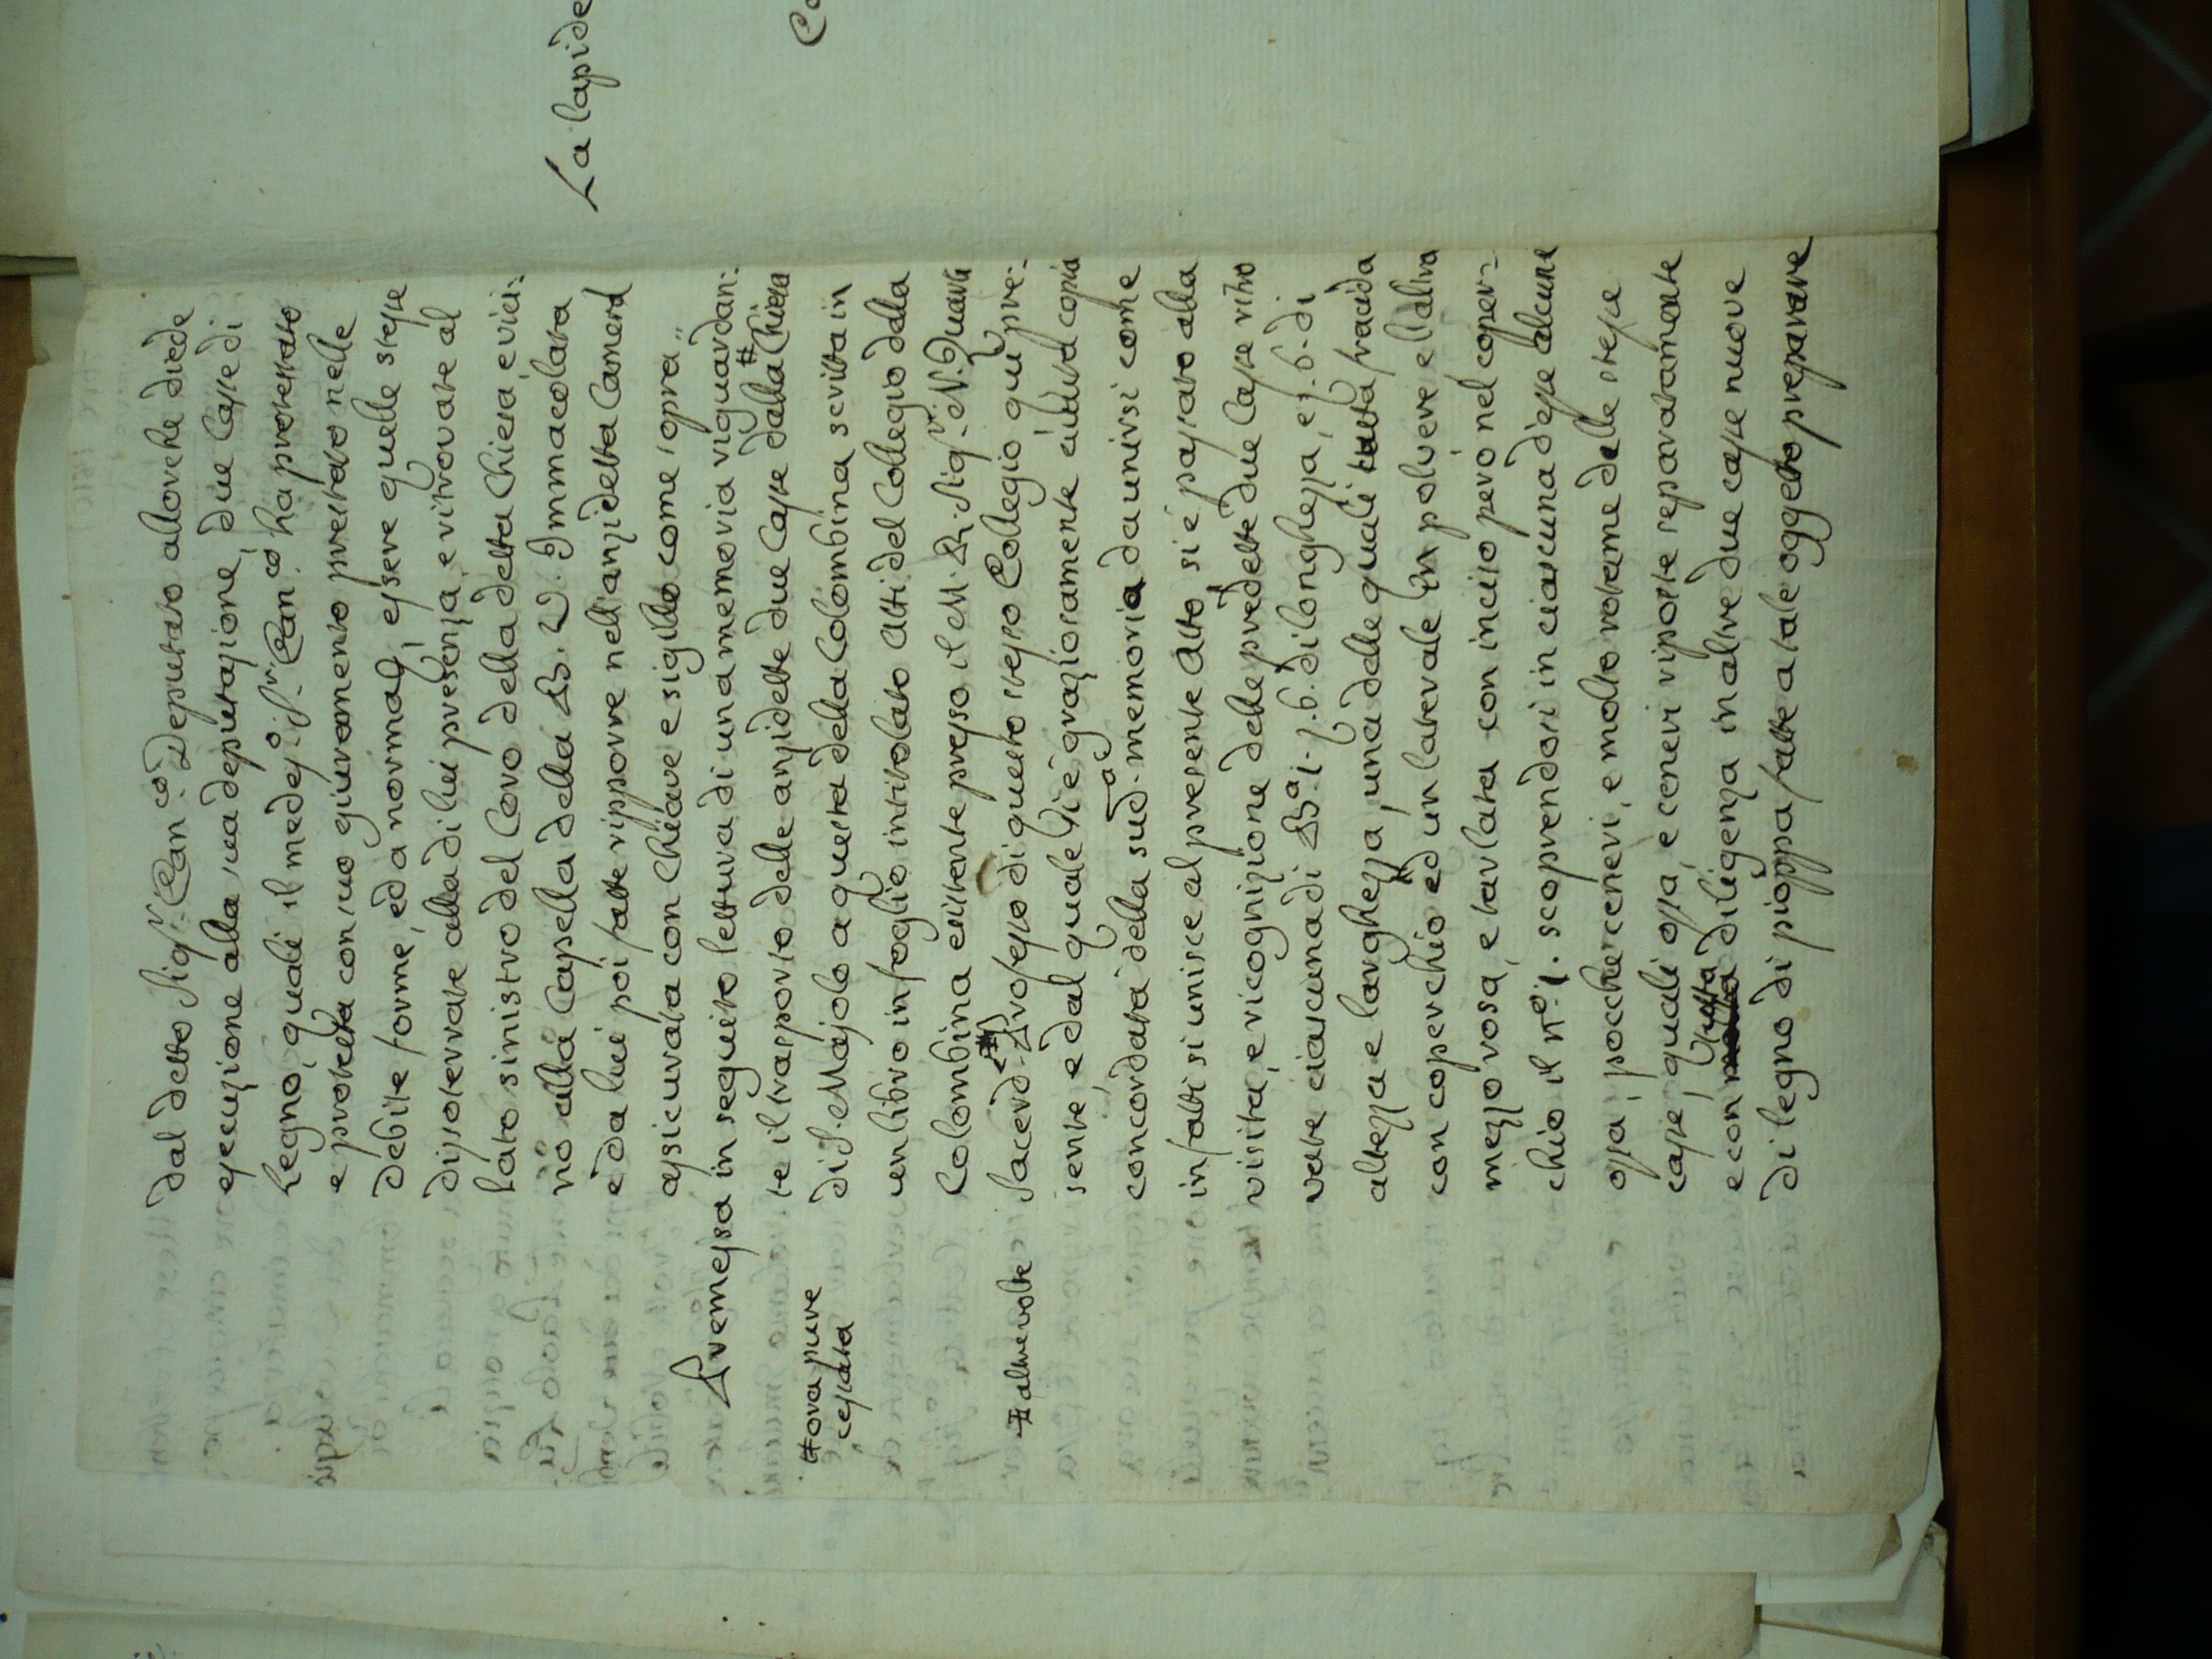 dal detto Sig.r Can.co Deputato allorche diede
esecuzione alla sua deputazione, due Casse di
Legno, quali il medes.o S.r Can.co ha protestato
e protesta con suo giuramento prestato nelle
debite forme, ed a norma, essere quelle stesse
dissoterrate alla di lui presenza, e ritrovate al
lato sinistro del Coro della detta Chiesa, e vici:
no alla Capella della B. V. Immacolata
e da lui poi fatte ripporre nell'anzidetta Camera
assicurata con chiave e sigillo come sopra
Premessa in seguito lettura di una memoria riguardan:
te il trasporto delle anzidette due Casse dalla # Chiesa
# ora pure
cessata
di S. Majolo a questa della Colombina scritta in
un libro in foglio intitolato Atti del Collegio della
Colombina esistente presso il M. R. Sig.r N. N. Quarti
Sacerd.e # Professo di questo stesso Collegio qui pre:
# altre volte
sente, e dal quale si è graziosamente avuta copia
concordata della sud.a memoria da unirsi come
infatti si unisce al presente Atto, si è passato alla
visita, e ricognizione delle predette due Casse ritro
vate ciascuna di B.a 1. 6. di longhezza, e 6. di
altezza e larghezza, una delle quali tutta fracida
con coperchio ed un laterale in polvere e l'altra
mezzo rosa, e tarlata con inciso però nel coper:
chio il n.o 1. scoprendosi in ciascuna d'esse alcune
ossa, pocche ceneri, e molto rottame delle stesse
casse, quali ossa, e ceneri riposte separatamente
e con tutta diligenza in altre due casse nuove
di legno di pioppa fatte a tale oggetto preparare
La lapide